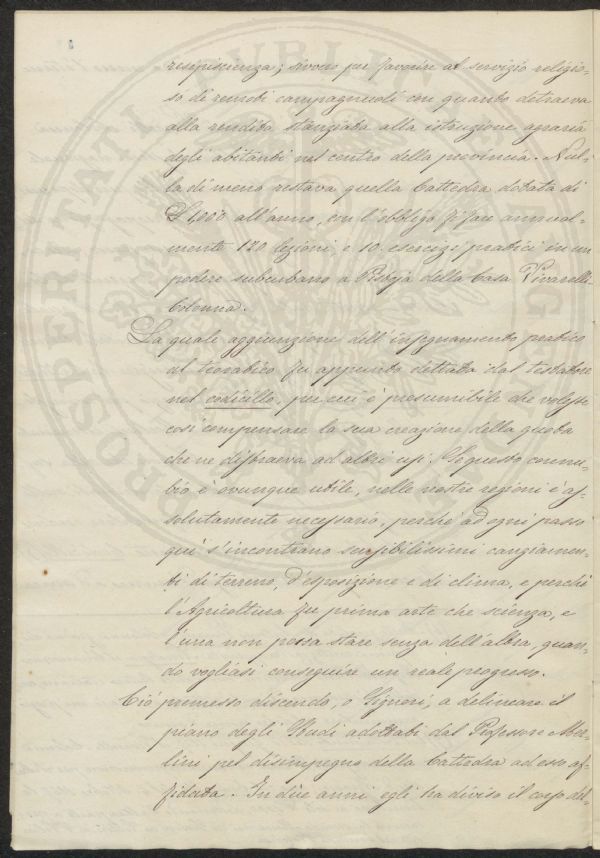 resipiscienza; sivvero per favorire al servizio religio-
so di remoti campagnuoli con quanto detraeva
alla rendita stanziata alla istruzione agraria
degli abitanti nel centro della provincia. Nul-
la di meno restava quella Cattedra dotata di
£ 1,000 all'anno, con l'obbligo di fare annual-
mente 120 lezioni, e 10 esercizi pratici in un
podere suburbano a Pistoja della Casa Vivarelli-
Colonna.
La quale aggiunzione dell'insegnamento pratico
al teoratico fu appunto dettata dal testatore
nel codicillo, per cui è presumibile che volesse
così compensare la sua creazione della quota
che ne distraeva ad altri usi. Se questo connu-
bio è ovunque utile, nelle nostre regioni è as-
solutamente necessario, perchè ad ogni passo
quì s'incontrano sensibilissimi cangiamen-
ti di terreno, d'esposizione e di clima, e perchè
l'Agricoltura fu prima arte che scienza, e
l'una non possa stare senza dell'altra, quan-
do vogliasi conseguire un reale progresso.
Ciò premesso discendo, o Signori, a delineare il
piano degli Studi adottati dal Professore Mer-
lini pel disimpegno della Cattedra ad esso af-
fidata. In due anni egli ha diviso il corso del-
PROSPERITATI PUBLICAE AUGENDAE